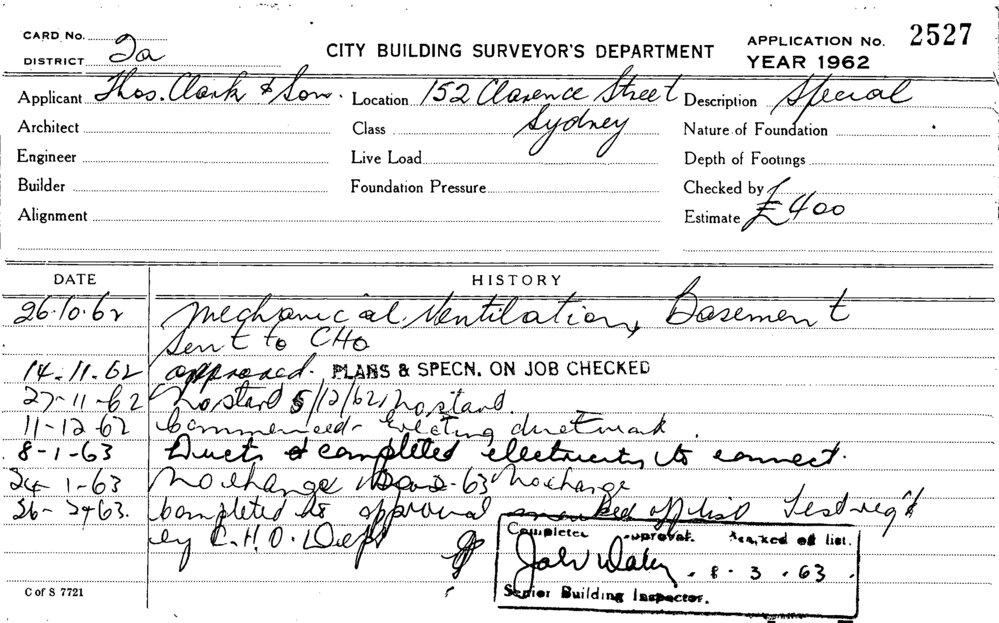 CARD No.
DISTRICT 2a
CITY BUILDING SURVEYOR'S DEPARTMENT
APPLICATION No. 2527
YEAR 1962
Applicant Thos. Clark & Son. Location 152 Clarence Street Description Special
Architect Class Sydney Nature of Foundation
Engineer Live Load Depth of Footings
Builder Foundation Pressure Checked by
Alignment Estimate £400
DATE HISTORY
26.10.62 Mechanical Ventilation, Basement
Sent to CHO
14.11.62 approved. PLANS & SPECN. ON JOB CHECKED
27-11-62 No start 5/12/62, No start.
11-12-62 Commenced erecting ductwork.
8-1-63 Ducts completed electricity to connect.
24-1-63 No change 63 No change
26- 63. Completed as approval marked off list Test req'd
by C.H.O. Dept
Completed approval. Marked off list.
John Daley 8.3.63.
Senior Building Inspector.
C of S 7721